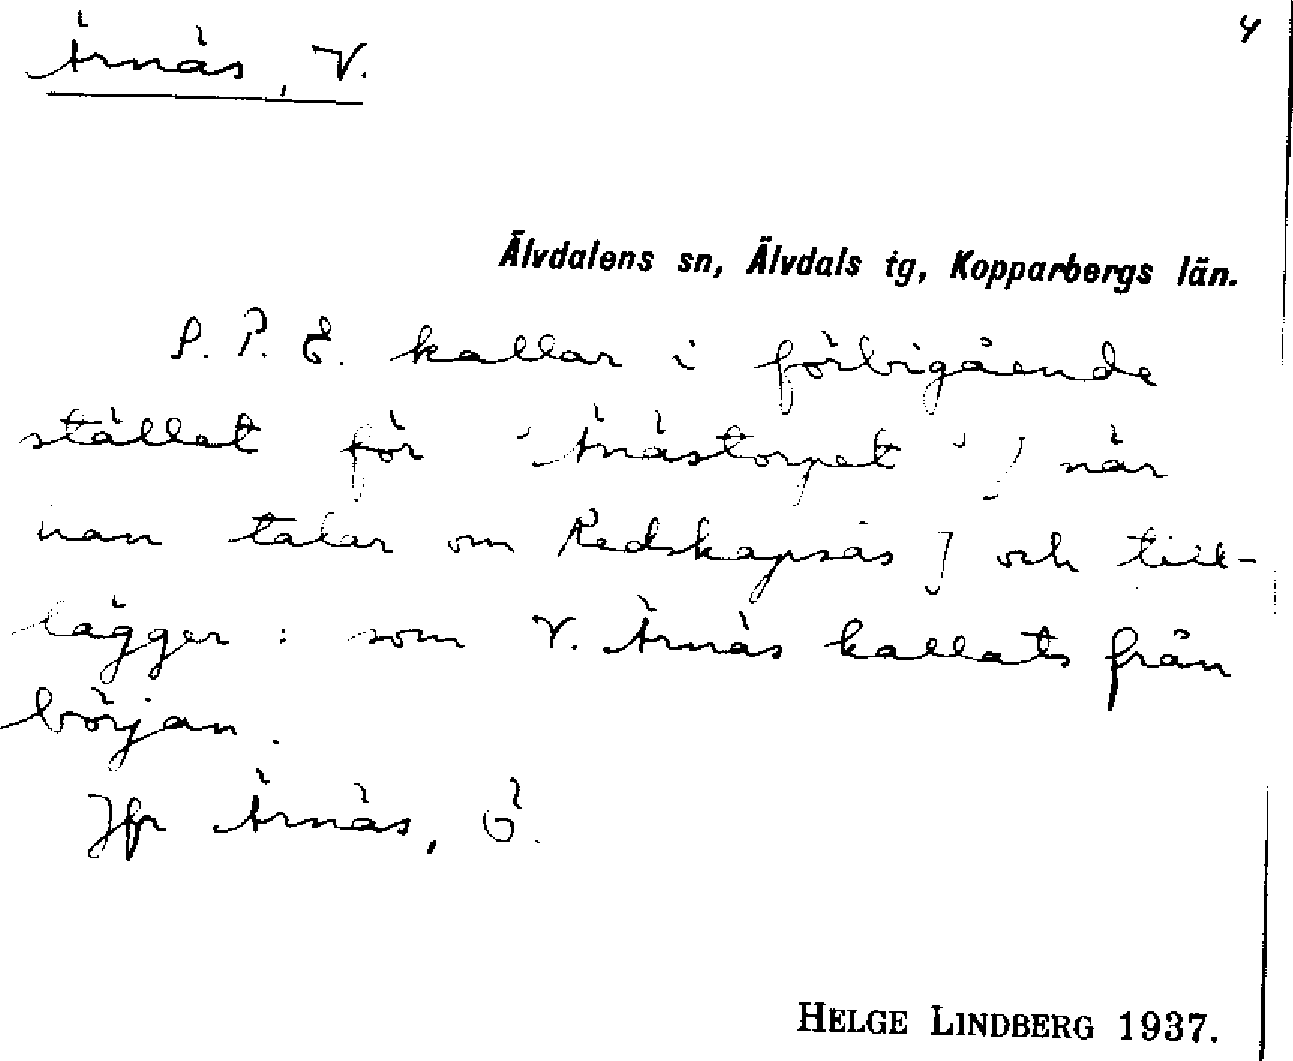 Ärnäs, V.
4
Älvdalens sn, Älvdals tg, Kopparbergs län.
S. P. E. kallar i förbigående
stället för "Änästorpet" [när
han talar om Redskapsås] och till-
lägger: som V. Ärnäs kallats från
början.
Jfr Ärnäs, Ö.
HELGE LINDBERG 1937.